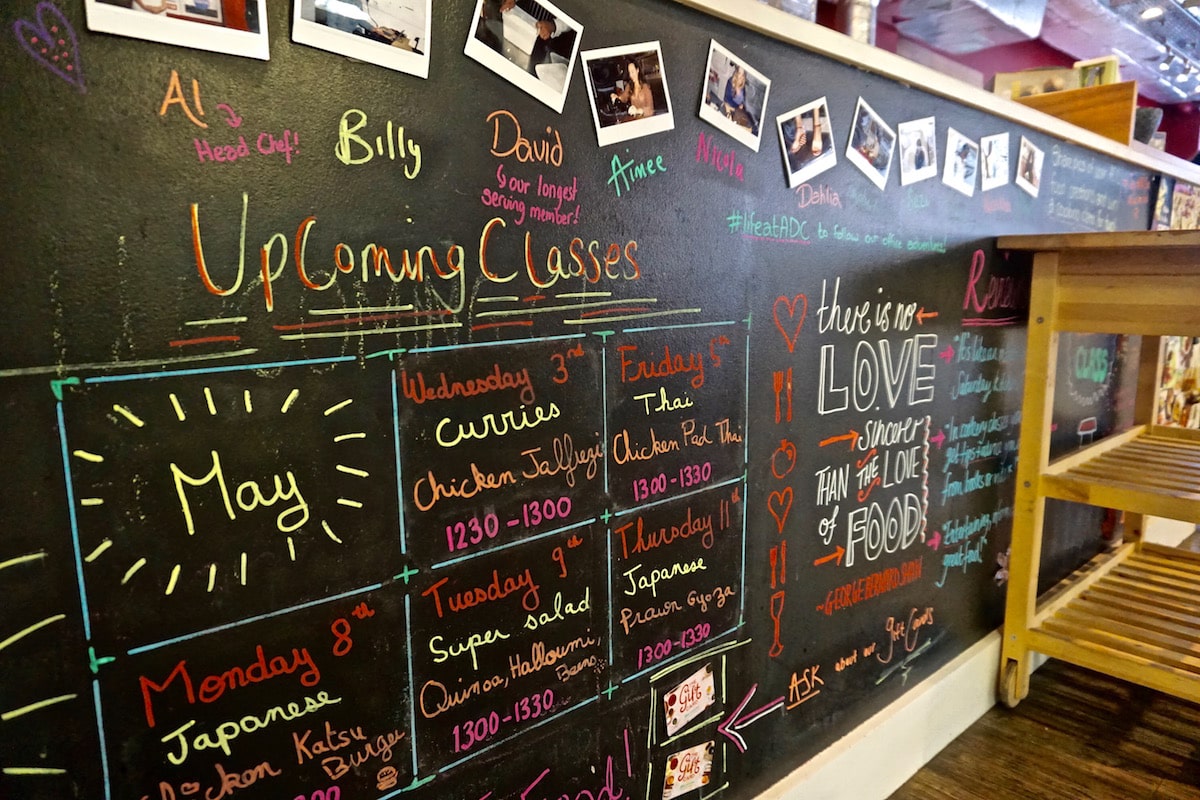 Al
Head Chef!
Billy
David
our longest
serving member!
Aimee
Nicola
Dahlia
#lifeatADC to follow our office adventures!
UpComing Classes
May
Wednesday 3rd
Curries
Chicken Jalfrezi
1230-1300
Friday 5th
Thai
Chicken Pad Thai
1300-1330
Monday 8th
Japanese
Chicken Katsu
Burger
Tuesday 9th
Super salad
Quinoa, Halloumi,
Beans
1300-1330
Thursday 11th
Japanese
Prawn Gyoza
1300-1330
there is no
LOVE
sincerer
THAN THE LOVE
of FOOD
~GEORGE BERNARD SHAW
ASK about our Gift Cards
Gift
Gift
"In cookery classes
from books or
"Entertaining,
great food!"
CLASS